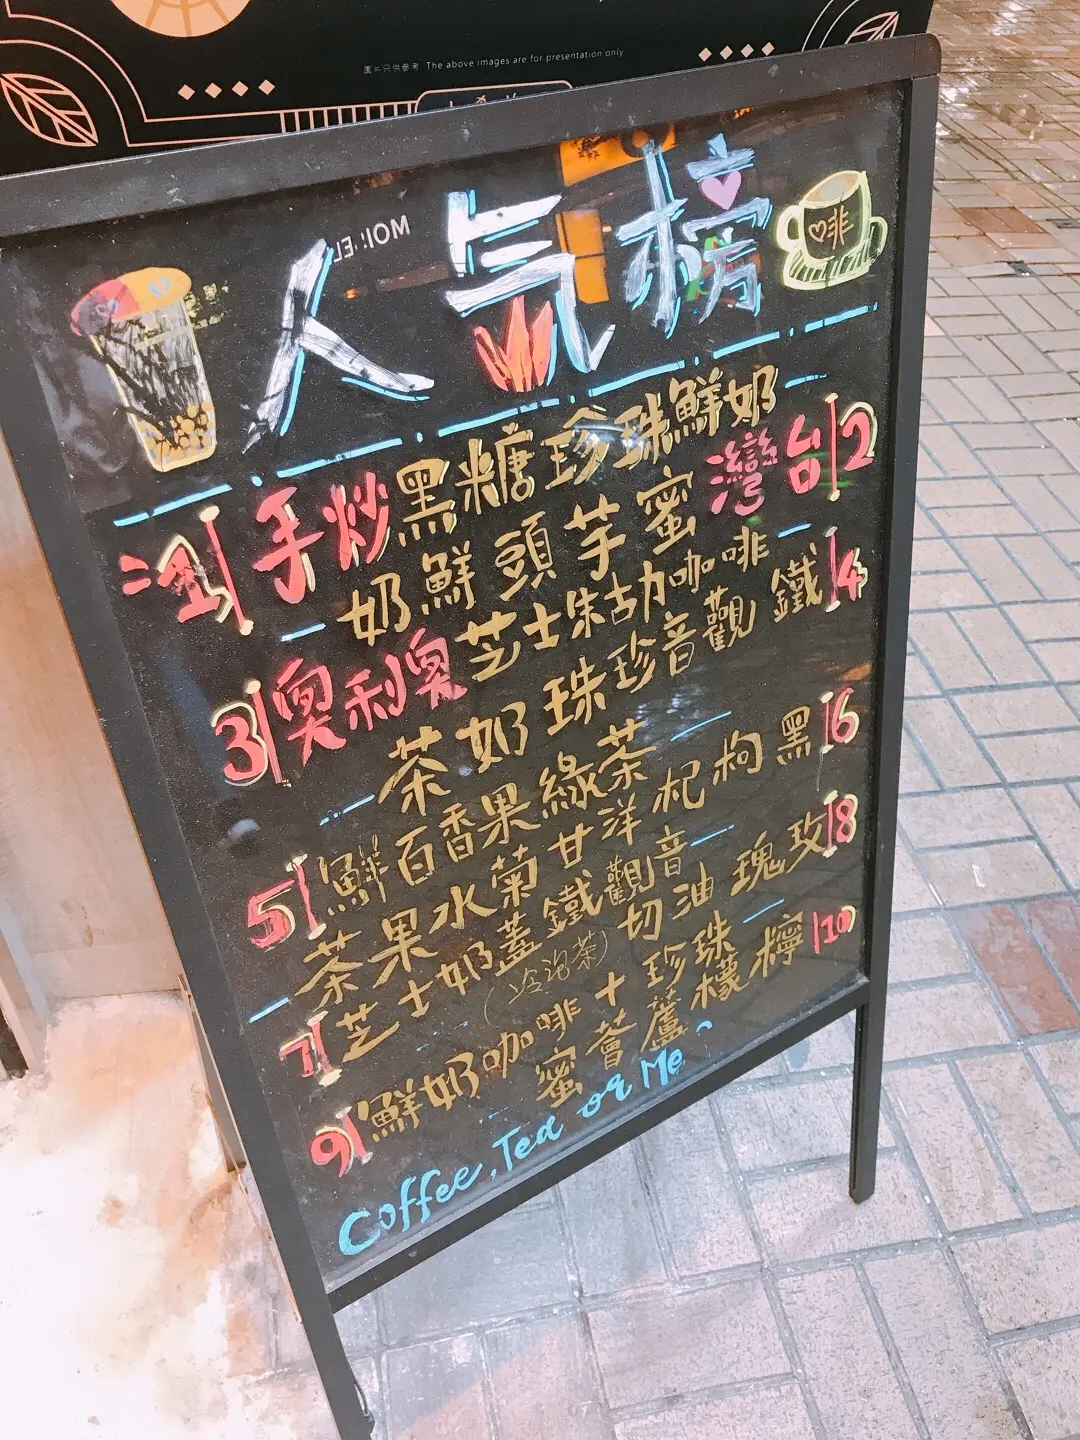 圖片只供參考 The above images are for presentation only
人氣榜
啡
1 手炒黑糖珍珠鮮奶
2 台灣蜜芋頭鮮奶
3 奧利奧芝士朱古力咖啡
4 鐵觀音珍珠奶茶
5 鮮百香果綠茶
6 黑枸杞洋甘菊水果茶
7 芝士奶蓋鐵觀音
8 玫瑰油切(冷泡茶)
9 鮮奶咖啡+珍珠
10 檸檬蘆薈蜜
Coffee, Tea or Me